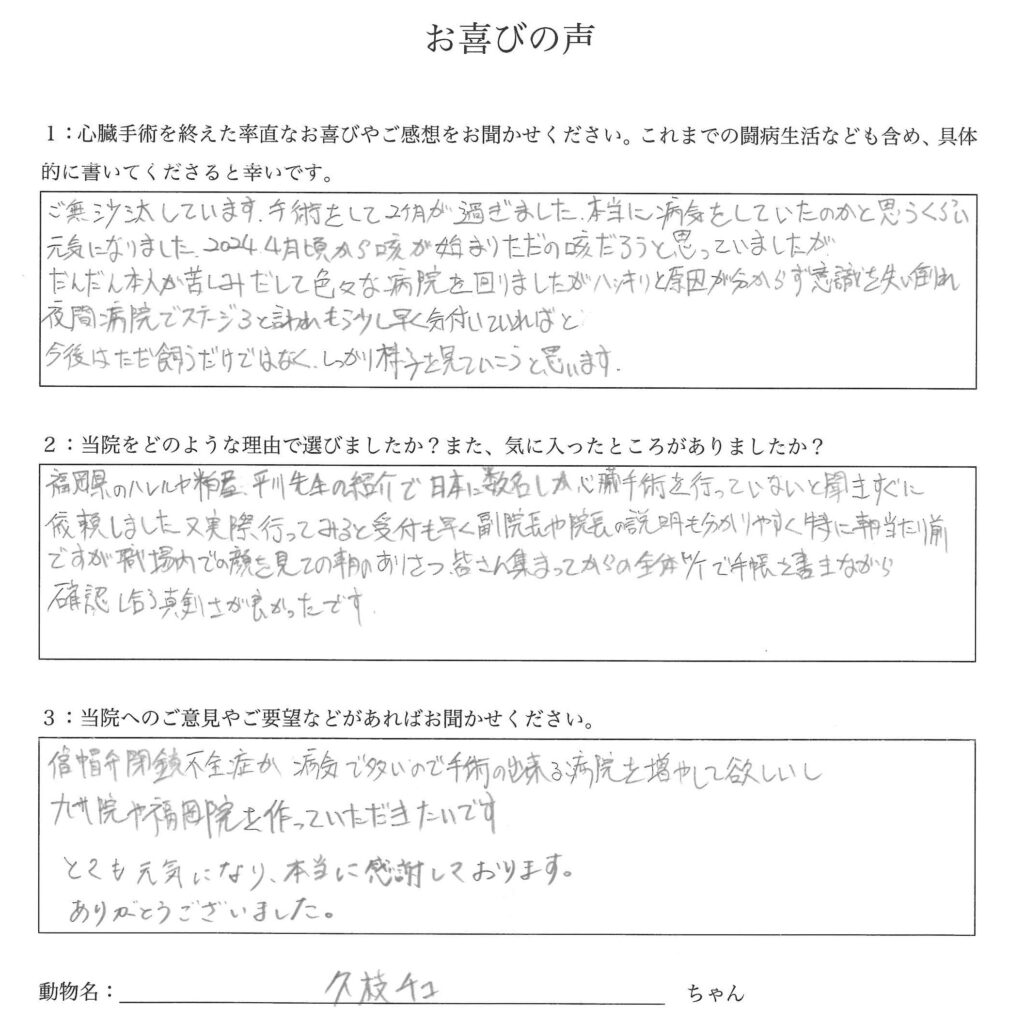 お喜びの声
1：心臓手術を終えた率直なお喜びやご感想をお聞かせください。これまでの闘病生活なども含め、具体
的に書いてくださると幸いです。
ご無沙汰しています.手術をして2ケ月が過ぎました.本当に病気をしていたのかと思うくらい
元気になりました.2024.4月頃から咳が始まりただの咳だろうと思っていましたが
だんだん本人が苦しみだして色々な病院を回りましたがハッキリと原因が分からず意識を失い倒れ
夜間病院でステージ3と言われもう少し早く気付いていればと
今後はただ飼うだけではなく.しっかり様子を見ていこうと思います.
2：当院をどのような理由で選びましたか？また、気に入ったところがありましたか？
福岡県のハレルヤ粕屋.平川先生の紹介で日本に数名しか心臓手術を行っていないと聞きすぐに
依頼しました又実際行ってみると受付も早く副院長や院長の説明も分かりやすく特に朝当たり前
ですが職場内での顔を見ての朝のあいさつ.皆さん集まってからの全体で手帳を書きながら
確認し合う真剣さが良かったです.
3：当院へのご意見やご要望などがあればお聞かせください。
僧帽弁閉鎖不全症が病気で多いので手術の出来る病院を増やして欲しいし
九州院や福岡院を作っていただきたいです
とても元気になり、本当に感謝しております。
ありがとうございました。
動物名：久枝チェ ちゃん